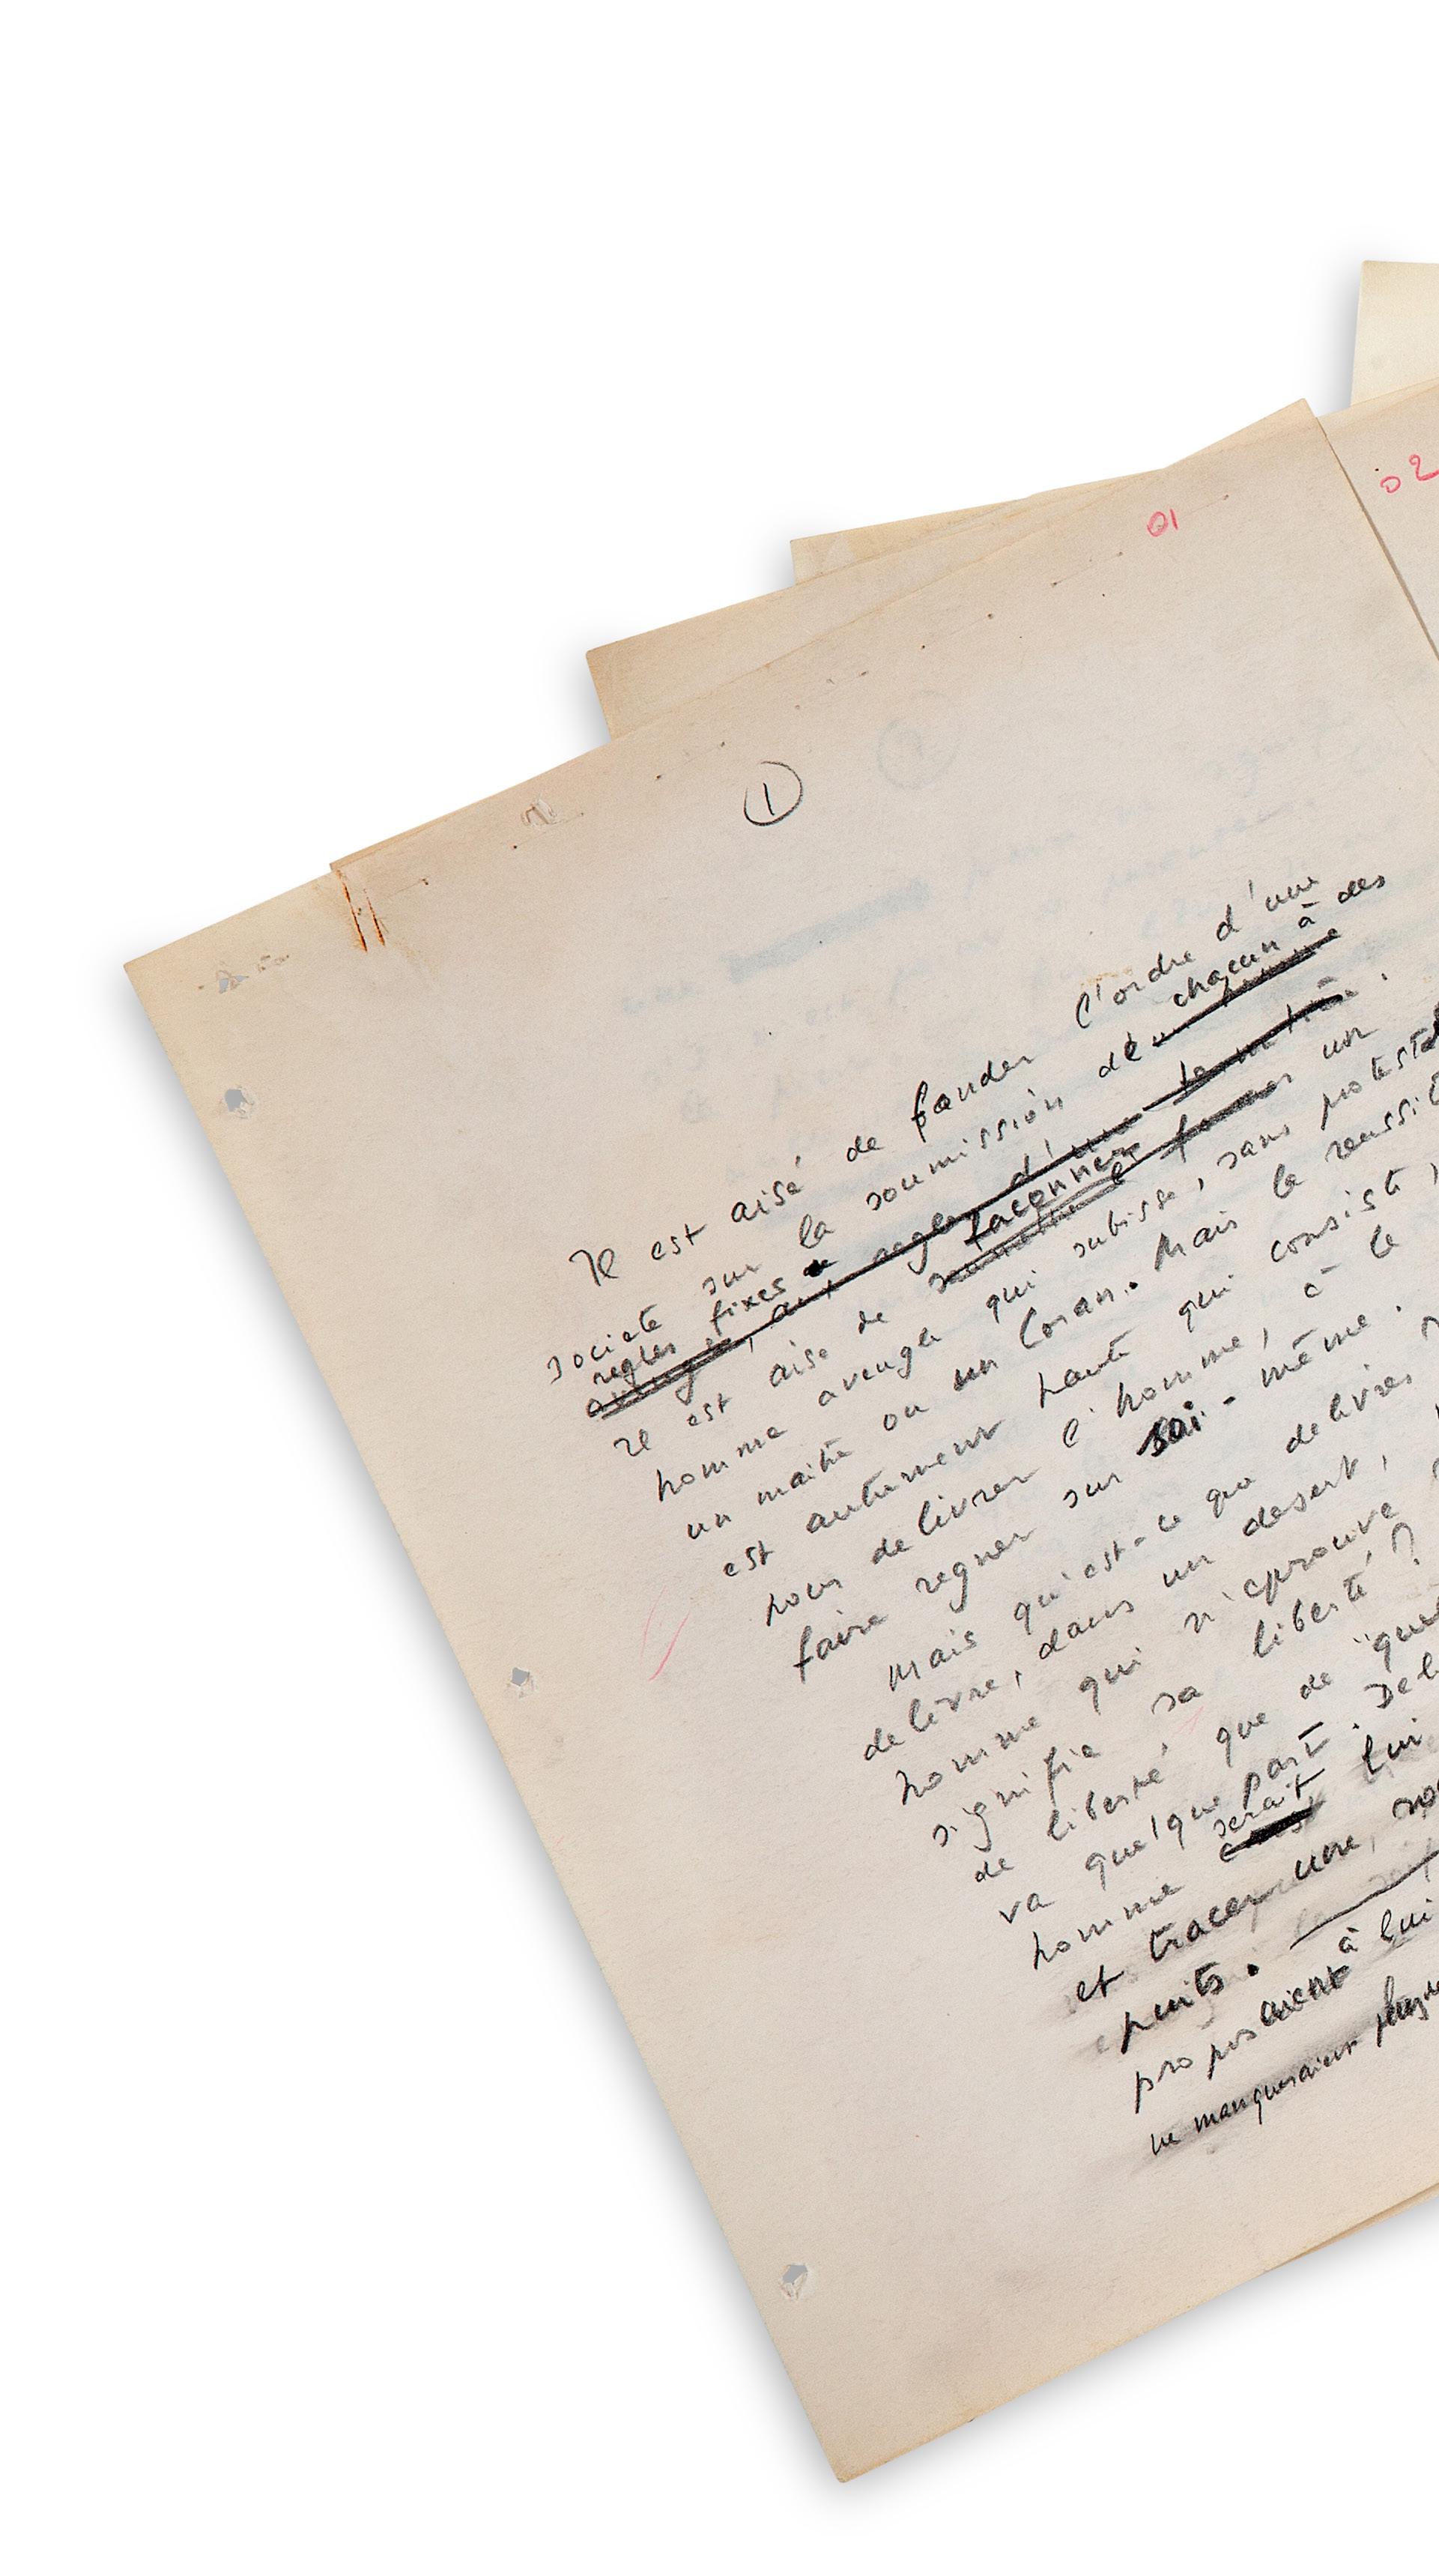 02
01
1
Il est aisé de fonder l'ordre d'une
société sur la soumission de chacun à des
règles fixes
Il est aisé de façonner un
homme aveugle qui subisse, sans protester
un maître ou un Coran. Mais la réussite
est autrement haute qui consiste,
pour délivrer l'homme, à le
faire régner sur soi-même.
Mais qu'est-ce que délivrer
délivre, dans un désert,
homme qui n'éprouve
signifie sa liberté ?
de liberté que de "quel
va quelque part. Dél
homme serait lui
et tracer une,
puits.
proposaient à lui
ne manqueraient plus